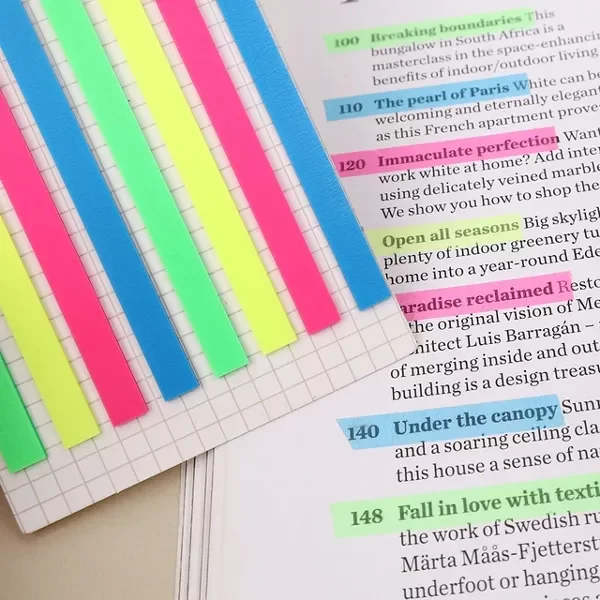 100 Breaking boundaries This
bungalow in South Africa is a
masterclass in the space-enhancin
benefits of indoor/outdoor living
110 The pearl of Paris White can be
welcoming and eternally elegant
as this French apartment prove
120 Immaculate perfection Want
work white at home? Add inter
using delicately veined marble
We show you how to shop the
Open all seasons Big skyligh
plenty of indoor greenery tu
home into a year-round Ede
aradise reclaimed Resto
the original vision of Me
chitect Luis Barragán –
of merging inside and out
building is a design treasu
140 Under the canopy Sunn
and a soaring ceiling cla
this house a sense of na
148 Fall in love with texti
the work of Swedish ru
Märta Måås-Fjetterst
underfoot or hanging